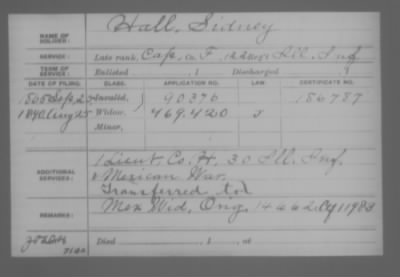 NAME OF SOLDIER: Hall, Sidney
SERVICE: Late rank, Capt, Co. F, Ill. Inf.
TERM OF SERVICE: Enlisted , 1 Discharged , 1
DATE OF FILING. CLASS. APPLICATION NO. LAW. CERTIFICATE NO.
Invalid, 90376 186787
1890 Aug 25 Widow, 469.420
Minor,
ADDITIONAL SERVICES: 1 Lieut. Co. H. 30 Ill. Inf.
& Mexican War.
Transferred to
REMARKS: Mex Wid, Orig. 14662
Died , 1 , at